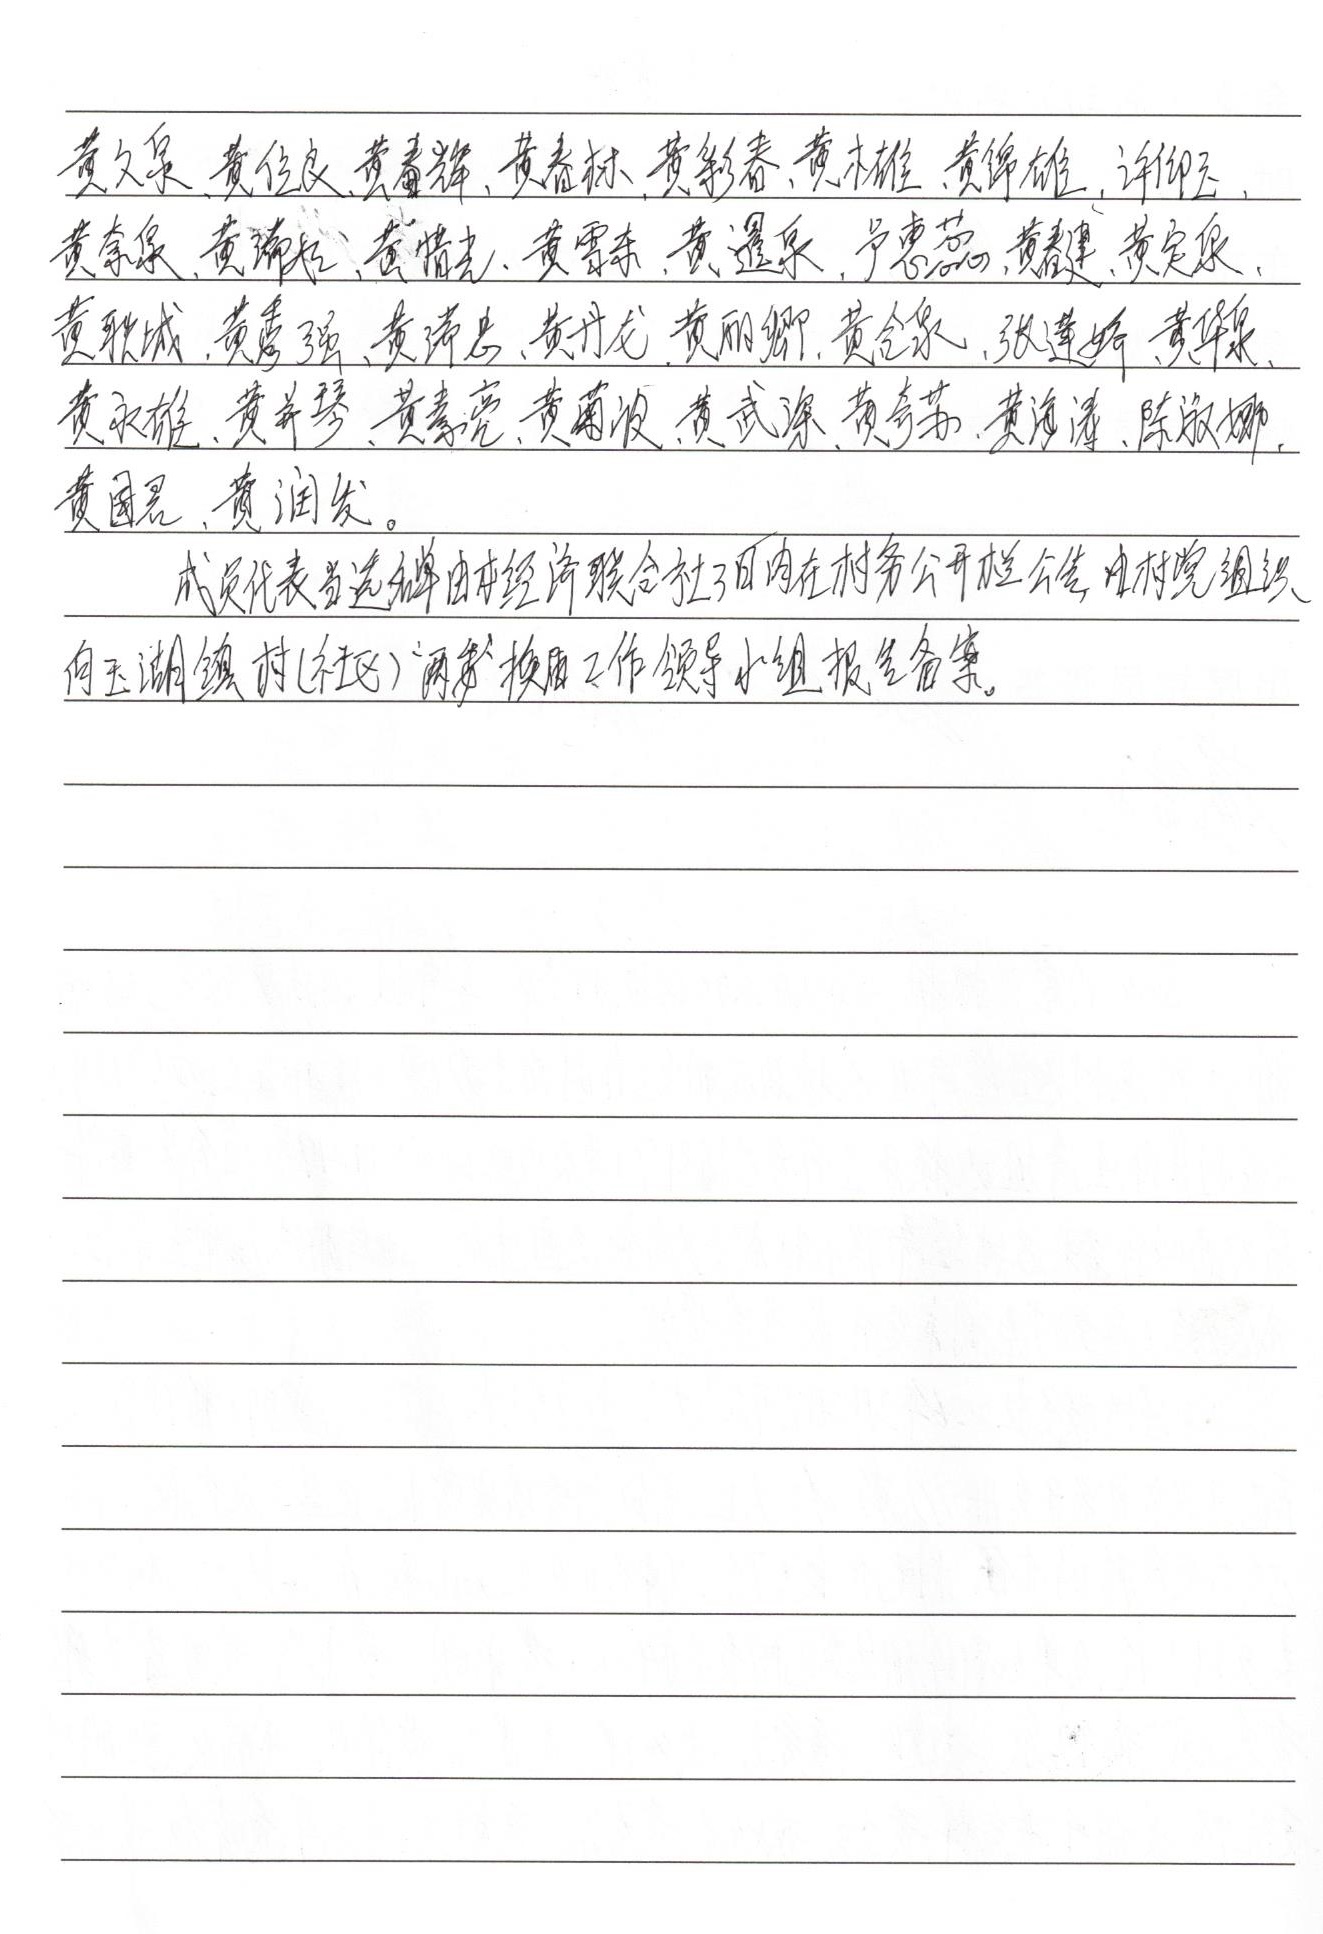 黄文泉、黄位良、黄春辉、黄春林、黄彩春、黄木雄、黄锦雄、许仰玉、
黄奎泉、黄瑞松、黄惜光、黄雪东、黄暹泉、卢惠蕊、黄春建、黄定泉、
黄耿城、黄秀强、黄瑞忠、黄丹龙、黄丽卿、黄合泉、张莲娇、黄华泉、
黄永雄、黄若琴、黄素亮、黄菊波、黄武深、黄奇苏、黄海涛、陈淑娜、
黄国君、黄润发。
成员代表当选名单由本经济联合社3日内在村务公开栏公告,由村党组织
向玉湖镇村(社区)“两委”换届工作领导小组报告备案。